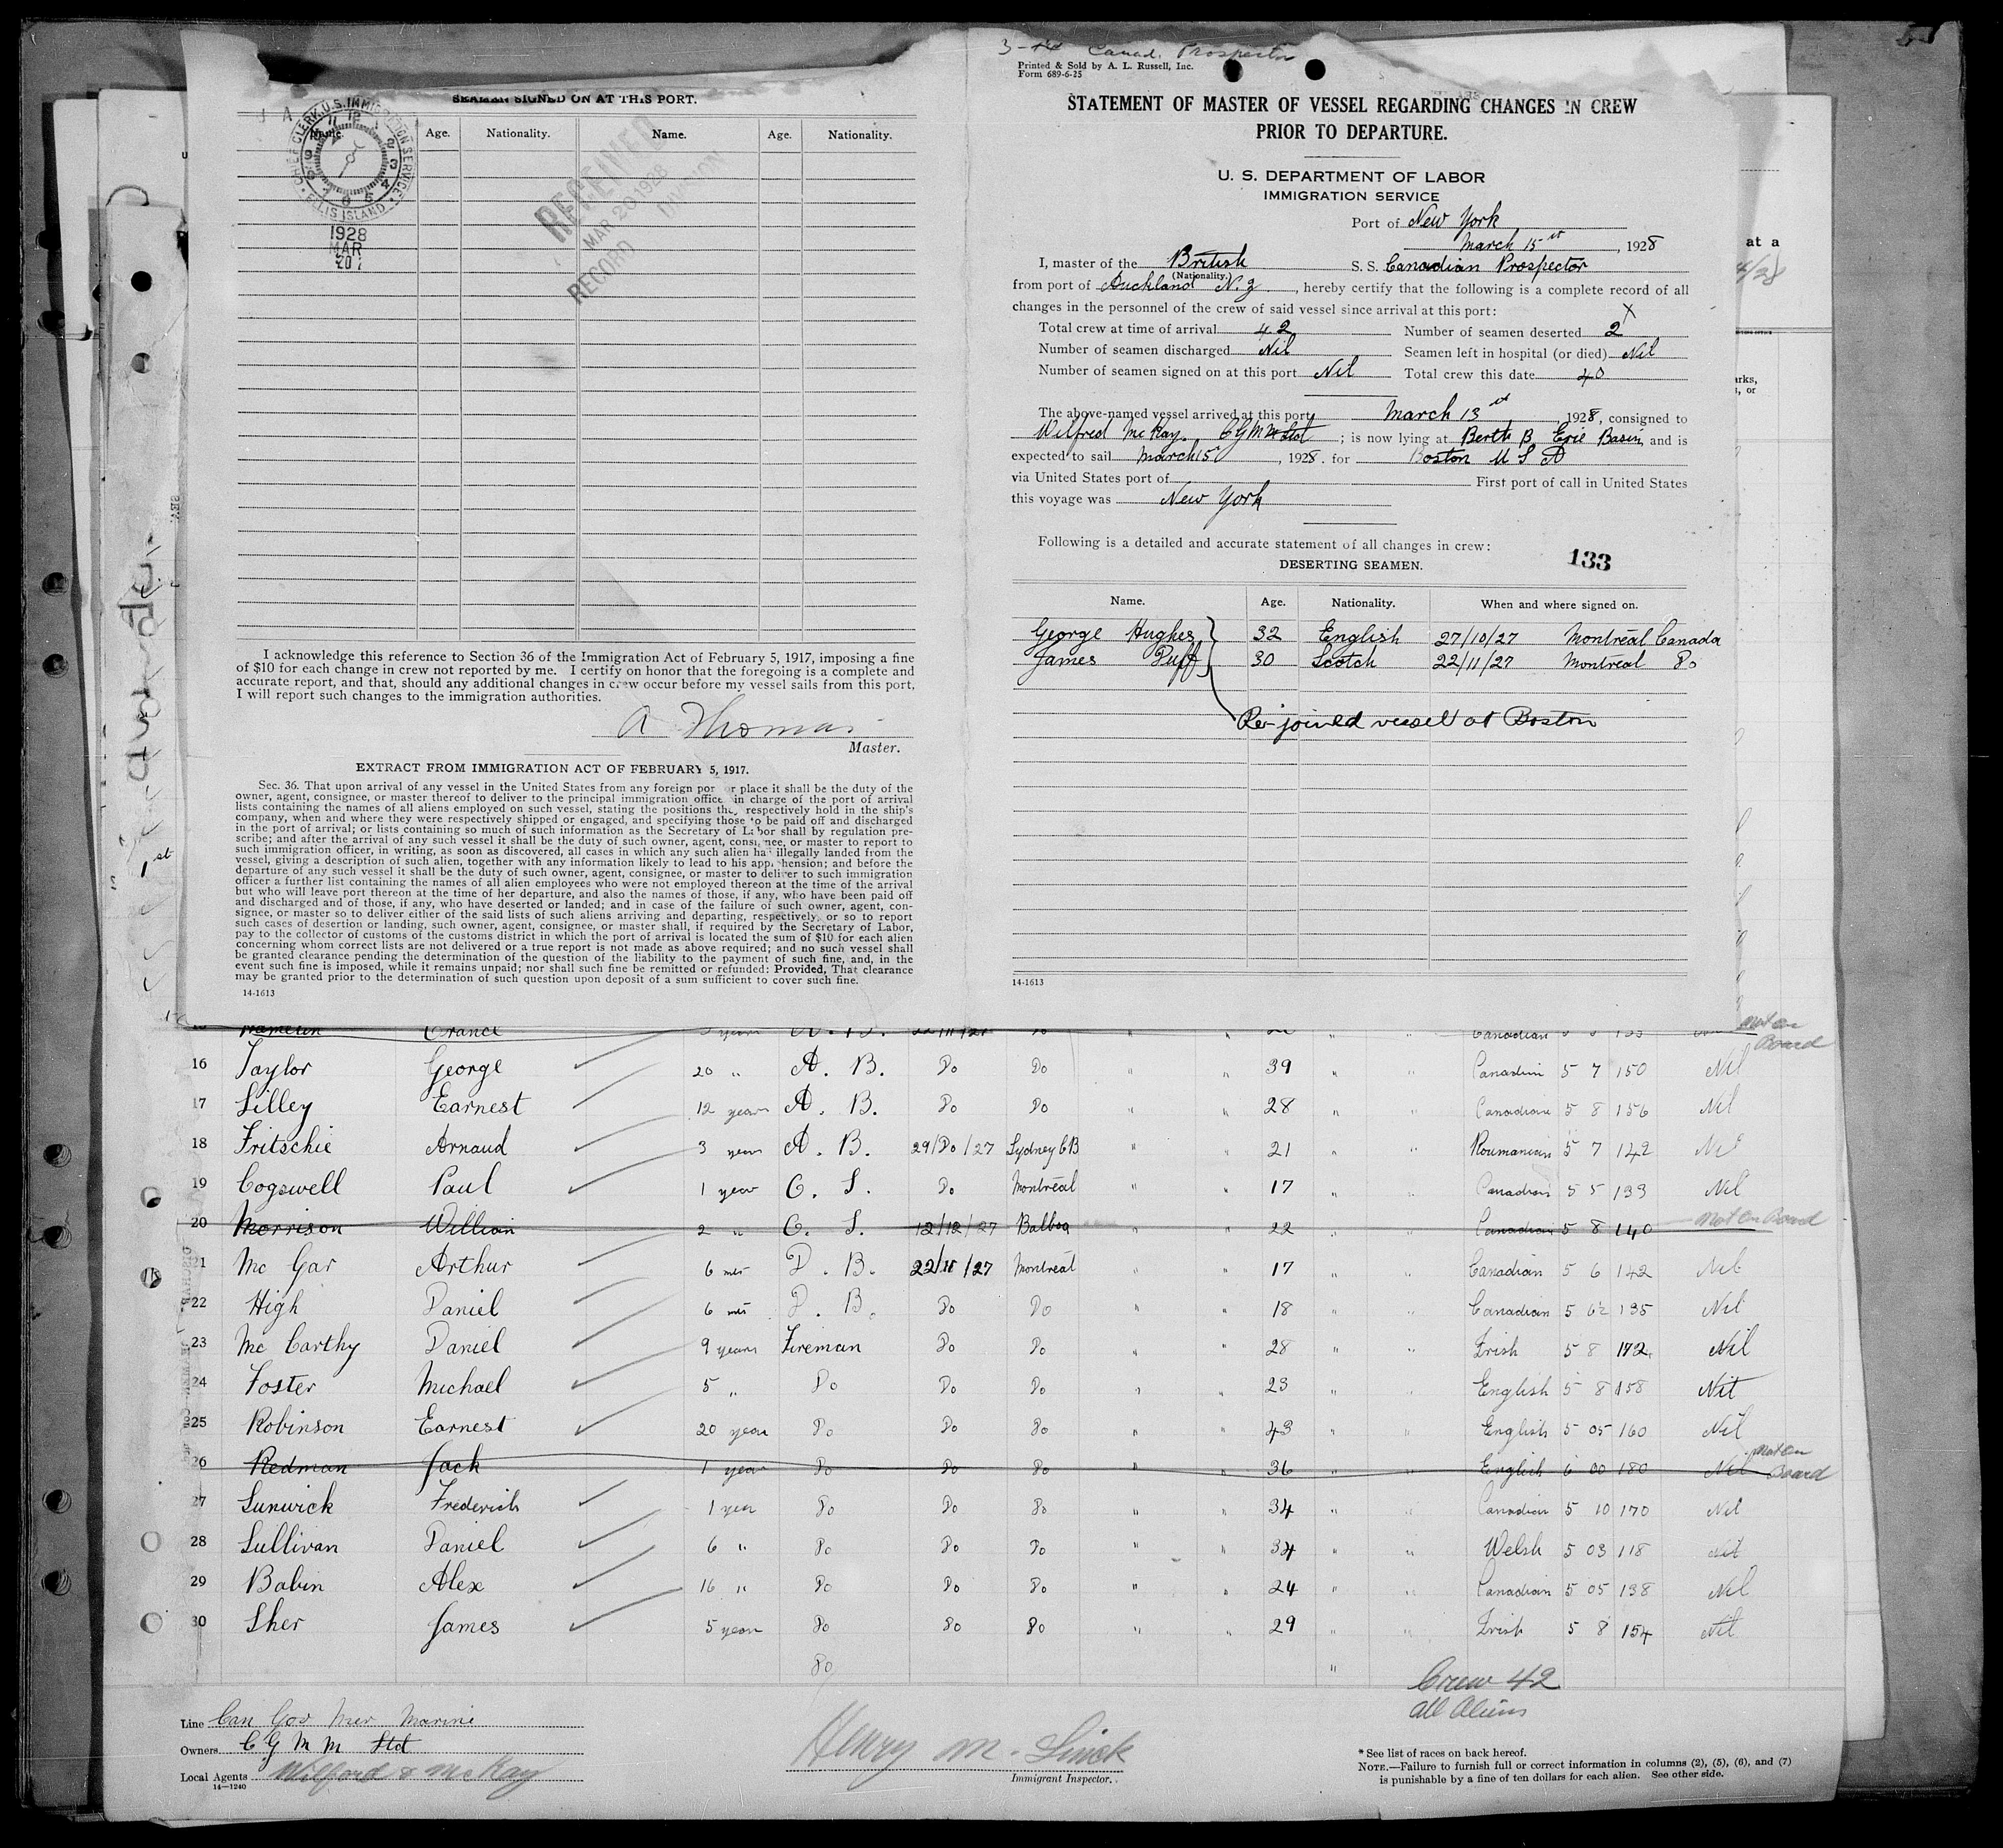 SEAMEN SIGNED ON AT THIS PORT.
Name. Age. Nationality. Name. Age. Nationality.
CHIEF CLERK U.S. IMMIGRATION SERVICE
ELLIS ISLAND
1928
MAR
20
RECEIVED
MAR 20 1928
RECORD DIVISION
I acknowledge this reference to Section 36 of the Immigration Act of February 5, 1917, imposing a fine
of $10 for each change in crew not reported by me. I certify on honor that the foregoing is a complete and
accurate report, and that, should any additional changes in crew occur before my vessel sails from this port,
I will report such changes to the immigration authorities.
A Thomas
Master.
EXTRACT FROM IMMIGRATION ACT OF FEBRUARY 5, 1917.
Sec. 36. That upon arrival of any vessel in the United States from any foreign por or place it shall be the duty of the
owner, agent, consignee, or master thereof to deliver to the principal immigration office in charge of the port of arrival
lists containing the names of all aliens employed on such vessel, stating the positions they respectively hold in the ship's
company, when and where they were respectively shipped or engaged, and specifying those to be paid off and discharged
in the port of arrival; or lists containing so much of such information as the Secretary of Labor shall by regulation pre-
scribe; and after the arrival of any such vessel it shall be the duty of such owner, agent, consignee, or master to report to
such immigration officer, in writing, as soon as discovered, all cases in which any such alien has illegally landed from the
vessel, giving a description of such alien, together with any information likely to lead to his apprehension; and before the
departure of any such vessel it shall be the duty of such owner, agent, consignee, or master to deliver to such immigration
officer a further list containing the names of all alien employees who were not employed thereon at the time of the arrival
but who will leave port thereon at the time of her departure, and also the names of those, if any, who have been paid off
and discharged and of those, if any, who have deserted or landed; and in case of the failure of such owner, agent, con-
signee, or master so to deliver either of the said lists of such aliens arriving and departing, respectively, or so to report
such cases of desertion or landing, such owner, agent, consignee, or master shall, if required by the Secretary of Labor,
pay to the collector of customs of the customs district in which the port of arrival is located the sum of $10 for each alien
concerning whom correct lists are not delivered or a true report is not made as above required; and no such vessel shall
be granted clearance pending the determination of the question of the liability to the payment of such fine, and, in the
event such fine is imposed, while it remains unpaid; nor shall such fine be remitted or refunded: Provided, That clearance
may be granted prior to the determination of such question upon deposit of a sum sufficient to cover such fine.
14-1613
Canad. Prospector
Printed & Sold by A. L. Russell, Inc.
Form 689-6-25
STATEMENT OF MASTER OF VESSEL REGARDING CHANGES IN CREW
PRIOR TO DEPARTURE.
U. S. DEPARTMENT OF LABOR
IMMIGRATION SERVICE
Port of New York
March 15th, 1928
I, master of the British S. S. Canadian Prospector
(Nationality.)
from port of Auckland N. Z, hereby certify that the following is a complete record of all
changes in the personnel of the crew of said vessel since arrival at this port:
Total crew at time of arrival 42 Number of seamen deserted 2 X
Number of seamen discharged Nil Seamen left in hospital (or died) Nil
Number of seamen signed on at this port Nil Total crew this date 40
The above-named vessel arrived at this port March 13th, 1928, consigned to
Wilfred McKay. C G M M Ltd; is now lying at Berth B Erie Basin, and is
expected to sail March 15, 1928. for Boston U S A
via United States port of First port of call in United States
this voyage was New York
Following is a detailed and accurate statement of all changes in crew:
133
DESERTING SEAMEN.
Name. Age. Nationality. When and where signed on.
George Hughes 32 English 27/10/27 Montreal Canada
James Puff 30 Scotch 22/11/27 Montreal Do
Re-joined vessel at Boston
14-1613
at a
4/28
not on
Board
16 Taylor George 20 " A. B. Do Do " " 39 " " Canadian 5 7 150 Nil
17 Lilley Earnest 12 years A. B. Do Do " " 28 " " Canadian 5 8 156 Nil
18 Fritschie Arnaud 3 years A. B. 29/Do/27 Sydney C B " " 21 " " Roumanian 5 7 142 Nil
19 Cogswell Paul 1 year O. S. Do Montreal " " 17 " " Canadian 5 5 133 Nil
20 Morrison William 2 " O. S. 12/12/27 Balboa " " 22 " " Canadian 5 8 140 not on Board
21 Mc Gar Arthur 6 mts D. B. 22/11/27 Montreal " " 17 " " Canadian 5 6 142 Nil
22 High Daniel 6 mts D. B. Do Do " " 18 " " Canadian 5 6½ 135 Nil
23 Mc Carthy Daniel 9 years Fireman Do Do " " 28 " " Irish 5 8 172 Nil
24 Foster Michael 5 " Do Do Do " " 23 " " English 5 8 158 Nil
25 Robinson Earnest 20 year Do Do Do " " 43 " " English 5 05 160 Nil
26 Redman Jack 1 year Do Do Do " " 36 " " English 6 00 180 Nil not on Board
27 Sunwick Frederick 1 year Do Do Do " " 34 " " Canadian 5 10 170 Nil
28 Sullivan Daniel 6 " Do Do Do " " 34 " " Welsh 5 03 118 Nil
29 Babin Alex 16 " Do Do Do " " 24 " " Canadian 5 05 138 Nil
30 Sher James 5 year Do Do Do " " 29 " " Irish 5 8 154 Nil
Do "
Crew 42
All Aliens
Line Can Gov Mer Marine
Owners C G M M Ltd
Local Agents Wilford & McKay
14—1240
Henry M. Linick
Immigrant Inspector.
* See list of races on back hereof.
NOTE.—Failure to furnish full or correct information in columns (2), (5), (6), and (7)
is punishable by a fine of ten dollars for each alien. See other side.